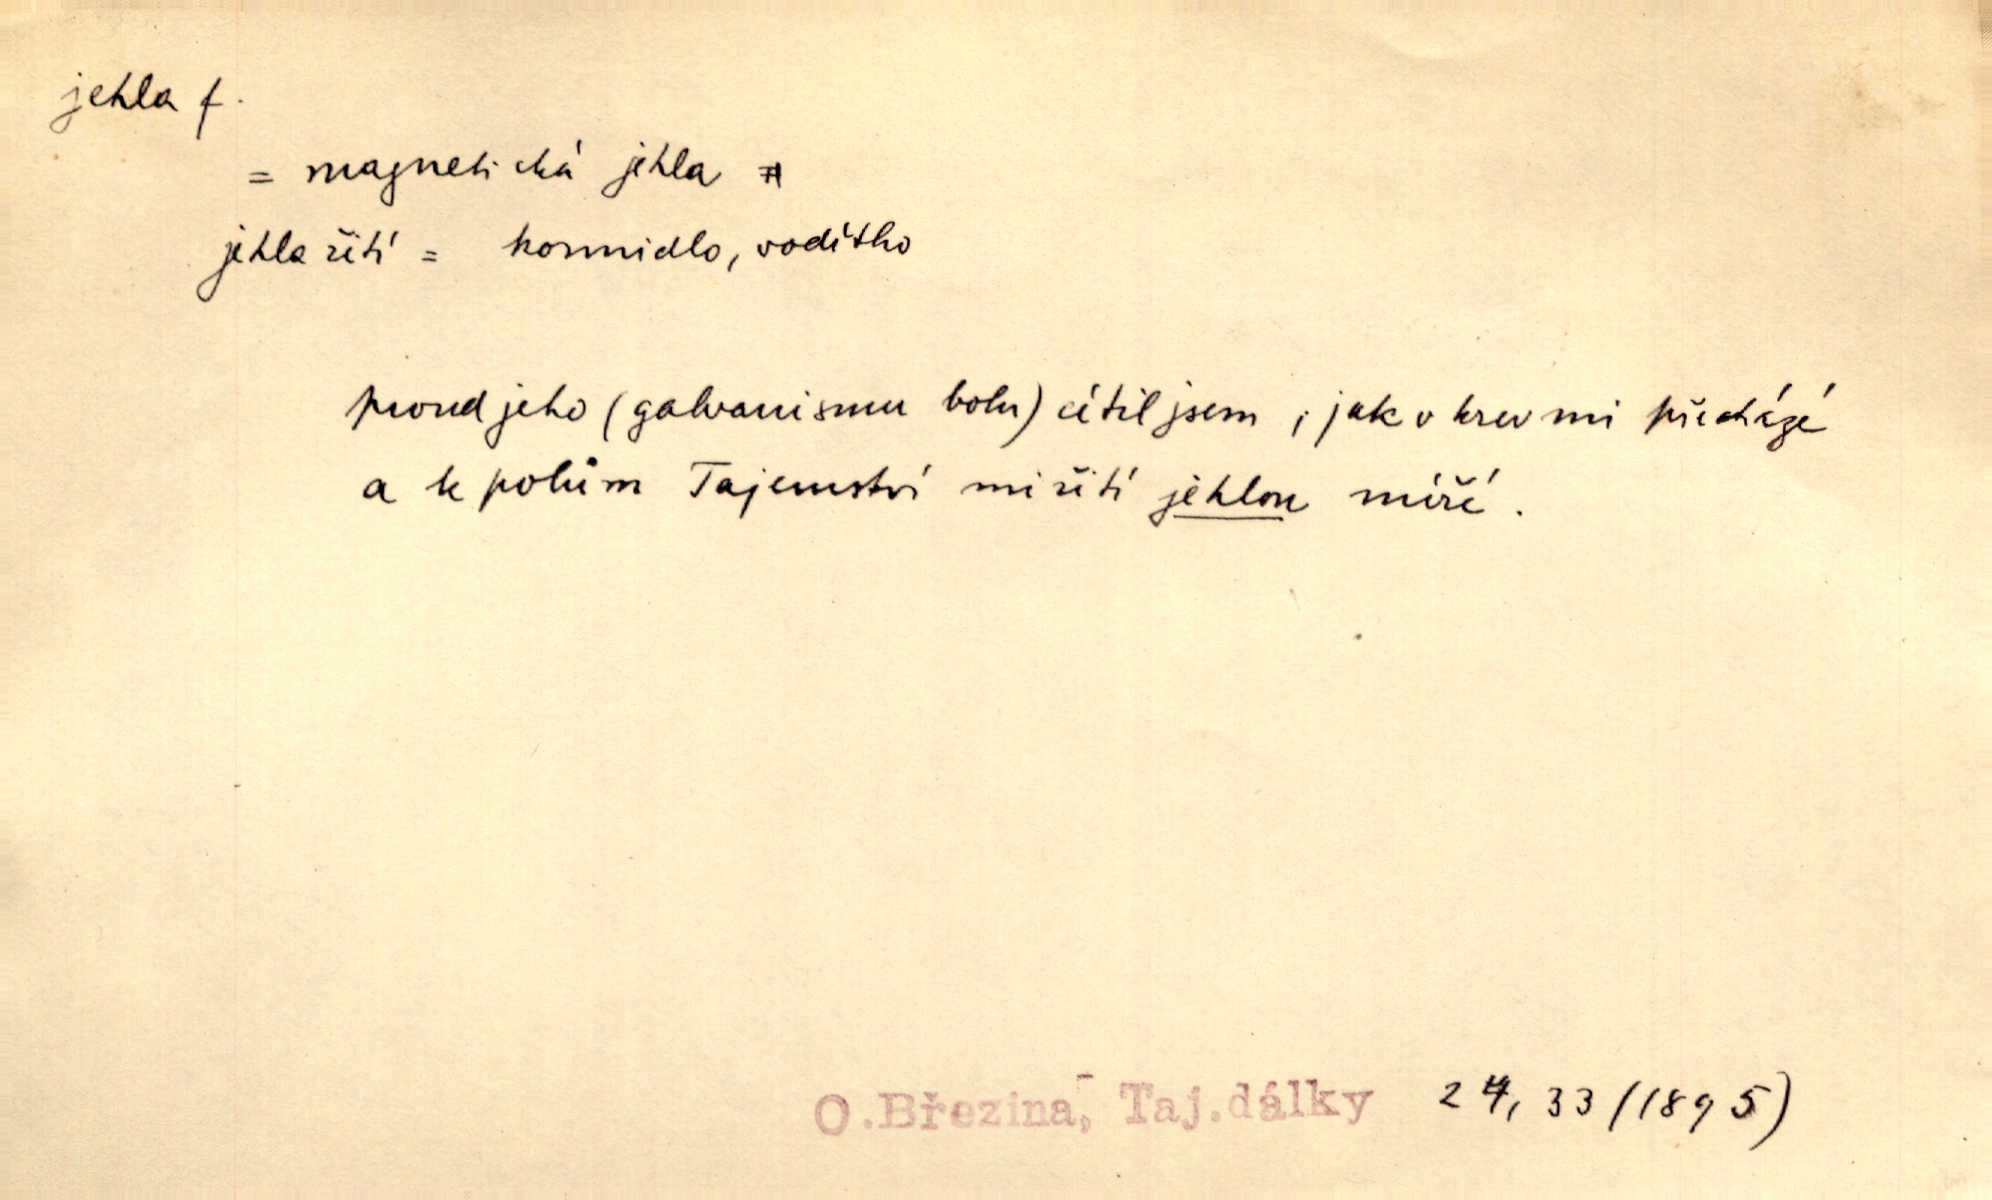 jehla f.
= magnetická jehla
jehla žití = kormidlo, vodítko
proud jeho (galvanismu bolu) cítil jsem, jak v krev mi přechází
a k polům Tajemství mi žití jehlou míří.
O.Březina, Taj.dálky 24, 33 (1895)